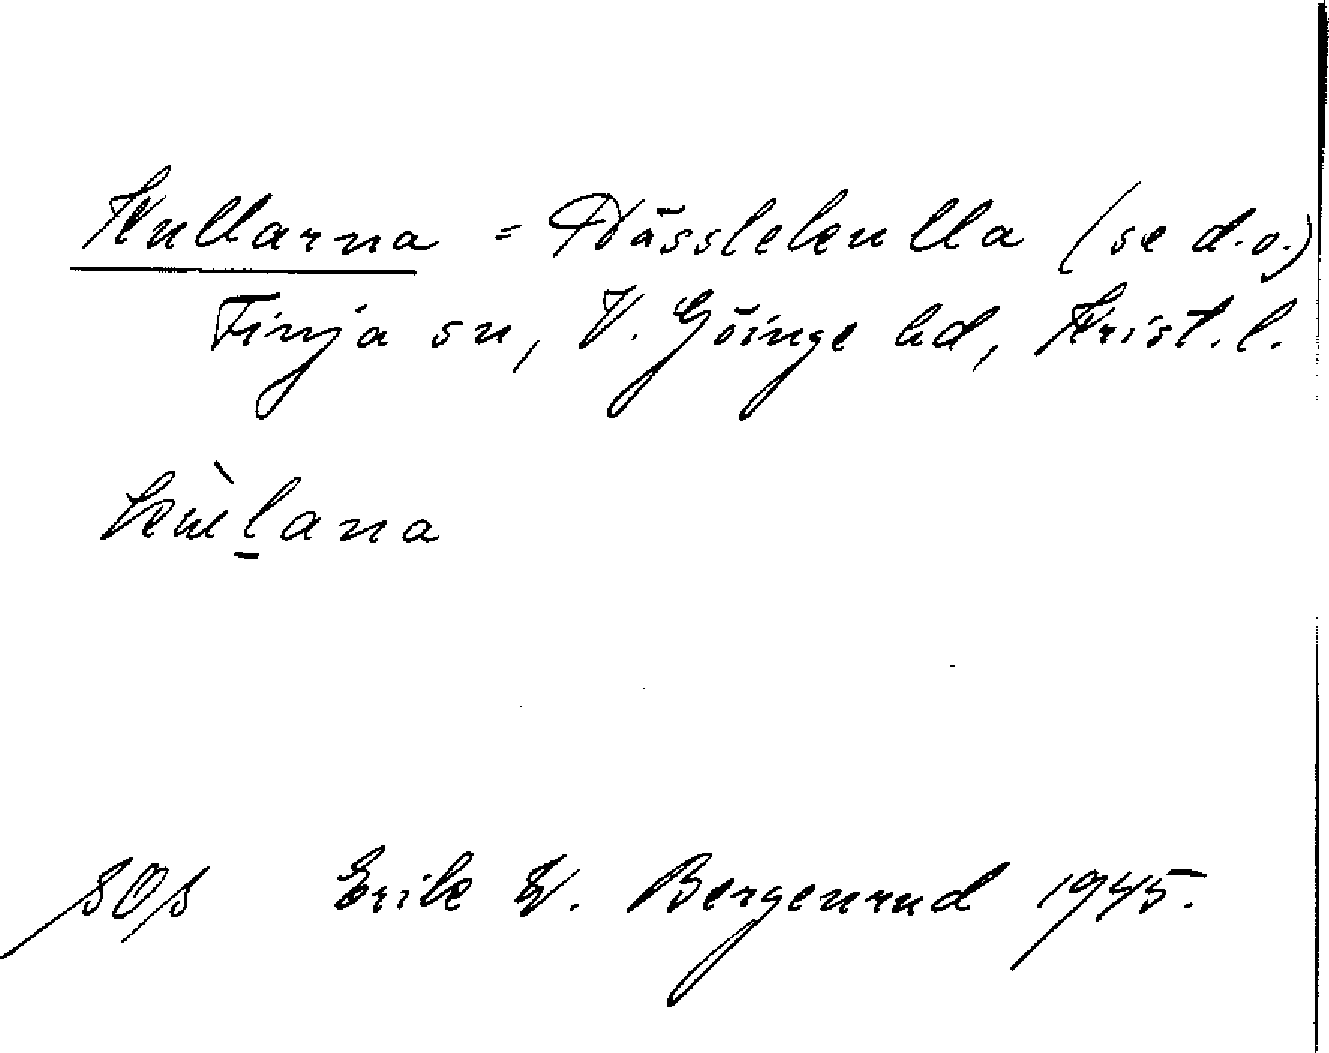 Kullarna = Nässlekulla (se d.o.)
Finja sn, V. Göinge hd, Krist. l.
kùl̲ana
Erik W. Bergenrud 1945.